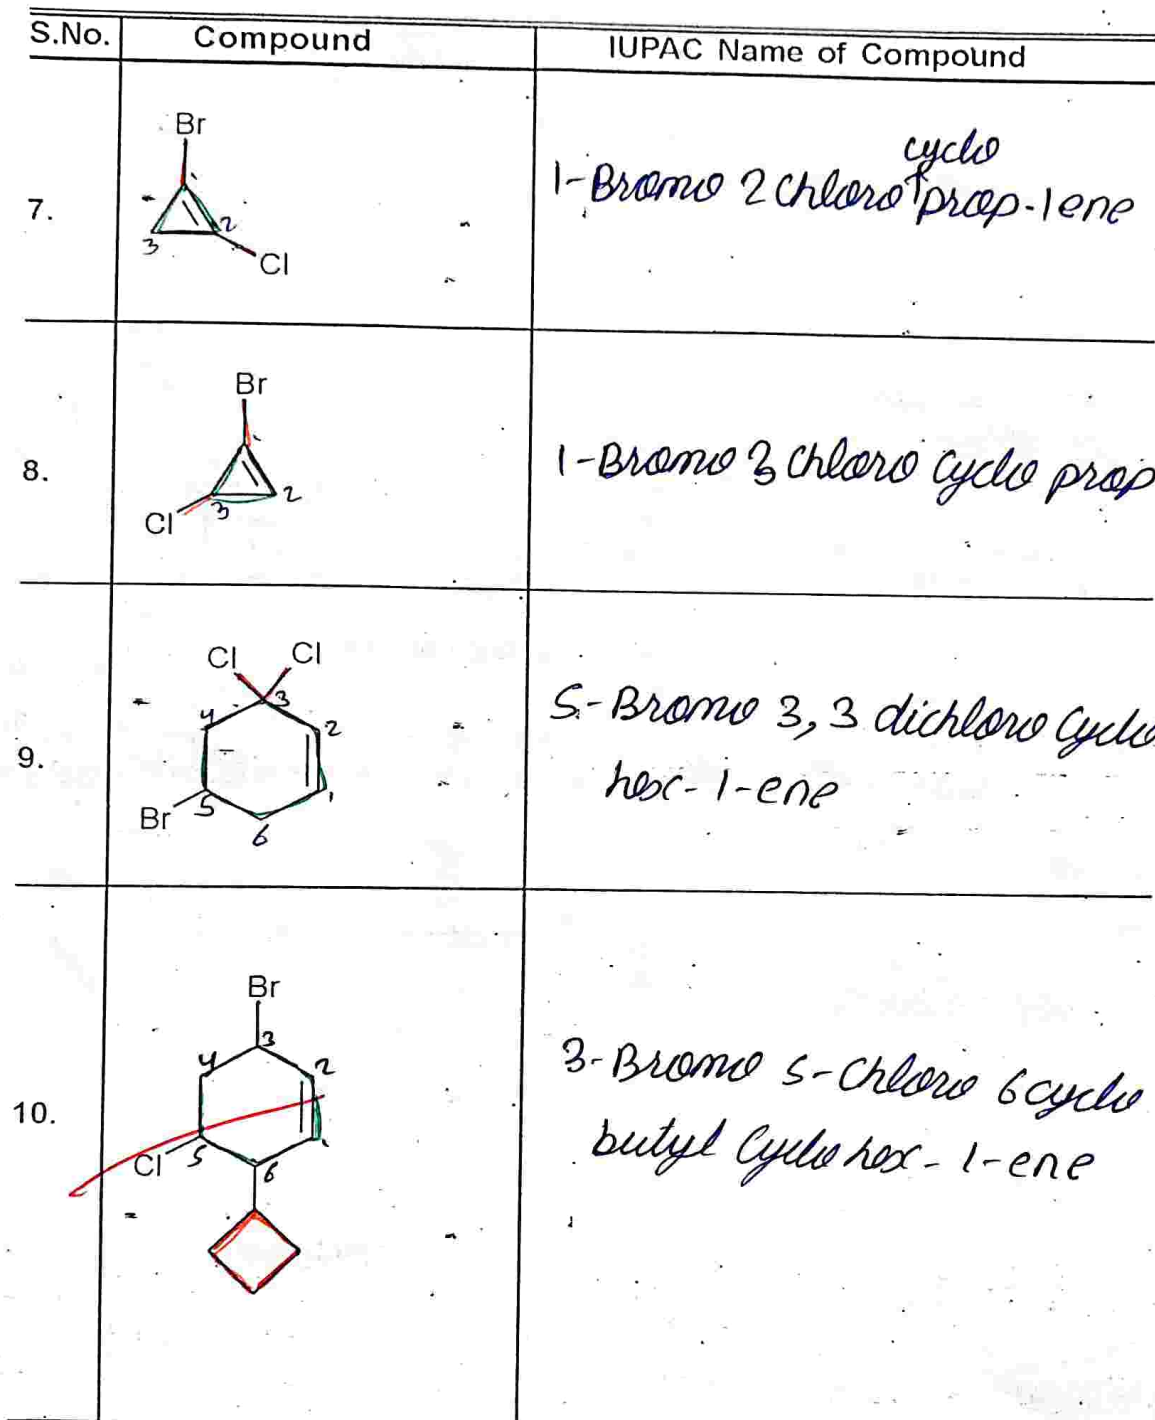 S.No. Compound IUPAC Name of Compound
7.
Br
2
3
Cl
cyclo
1-Bromo 2 chloro prop-1ene
8.
Br
2
3
Cl
1-Bromo 3 chloro cyclo prop
9.
Cl Cl
3
4 2
5 1
Br
6
5-Bromo 3, 3 dichloro cyclo
hex-1-ene
10.
Br
3
4 2
Cl 5 1
6
3-Bromo 5-Chloro 6 cyclo
butyl Cyclo hex-1-ene